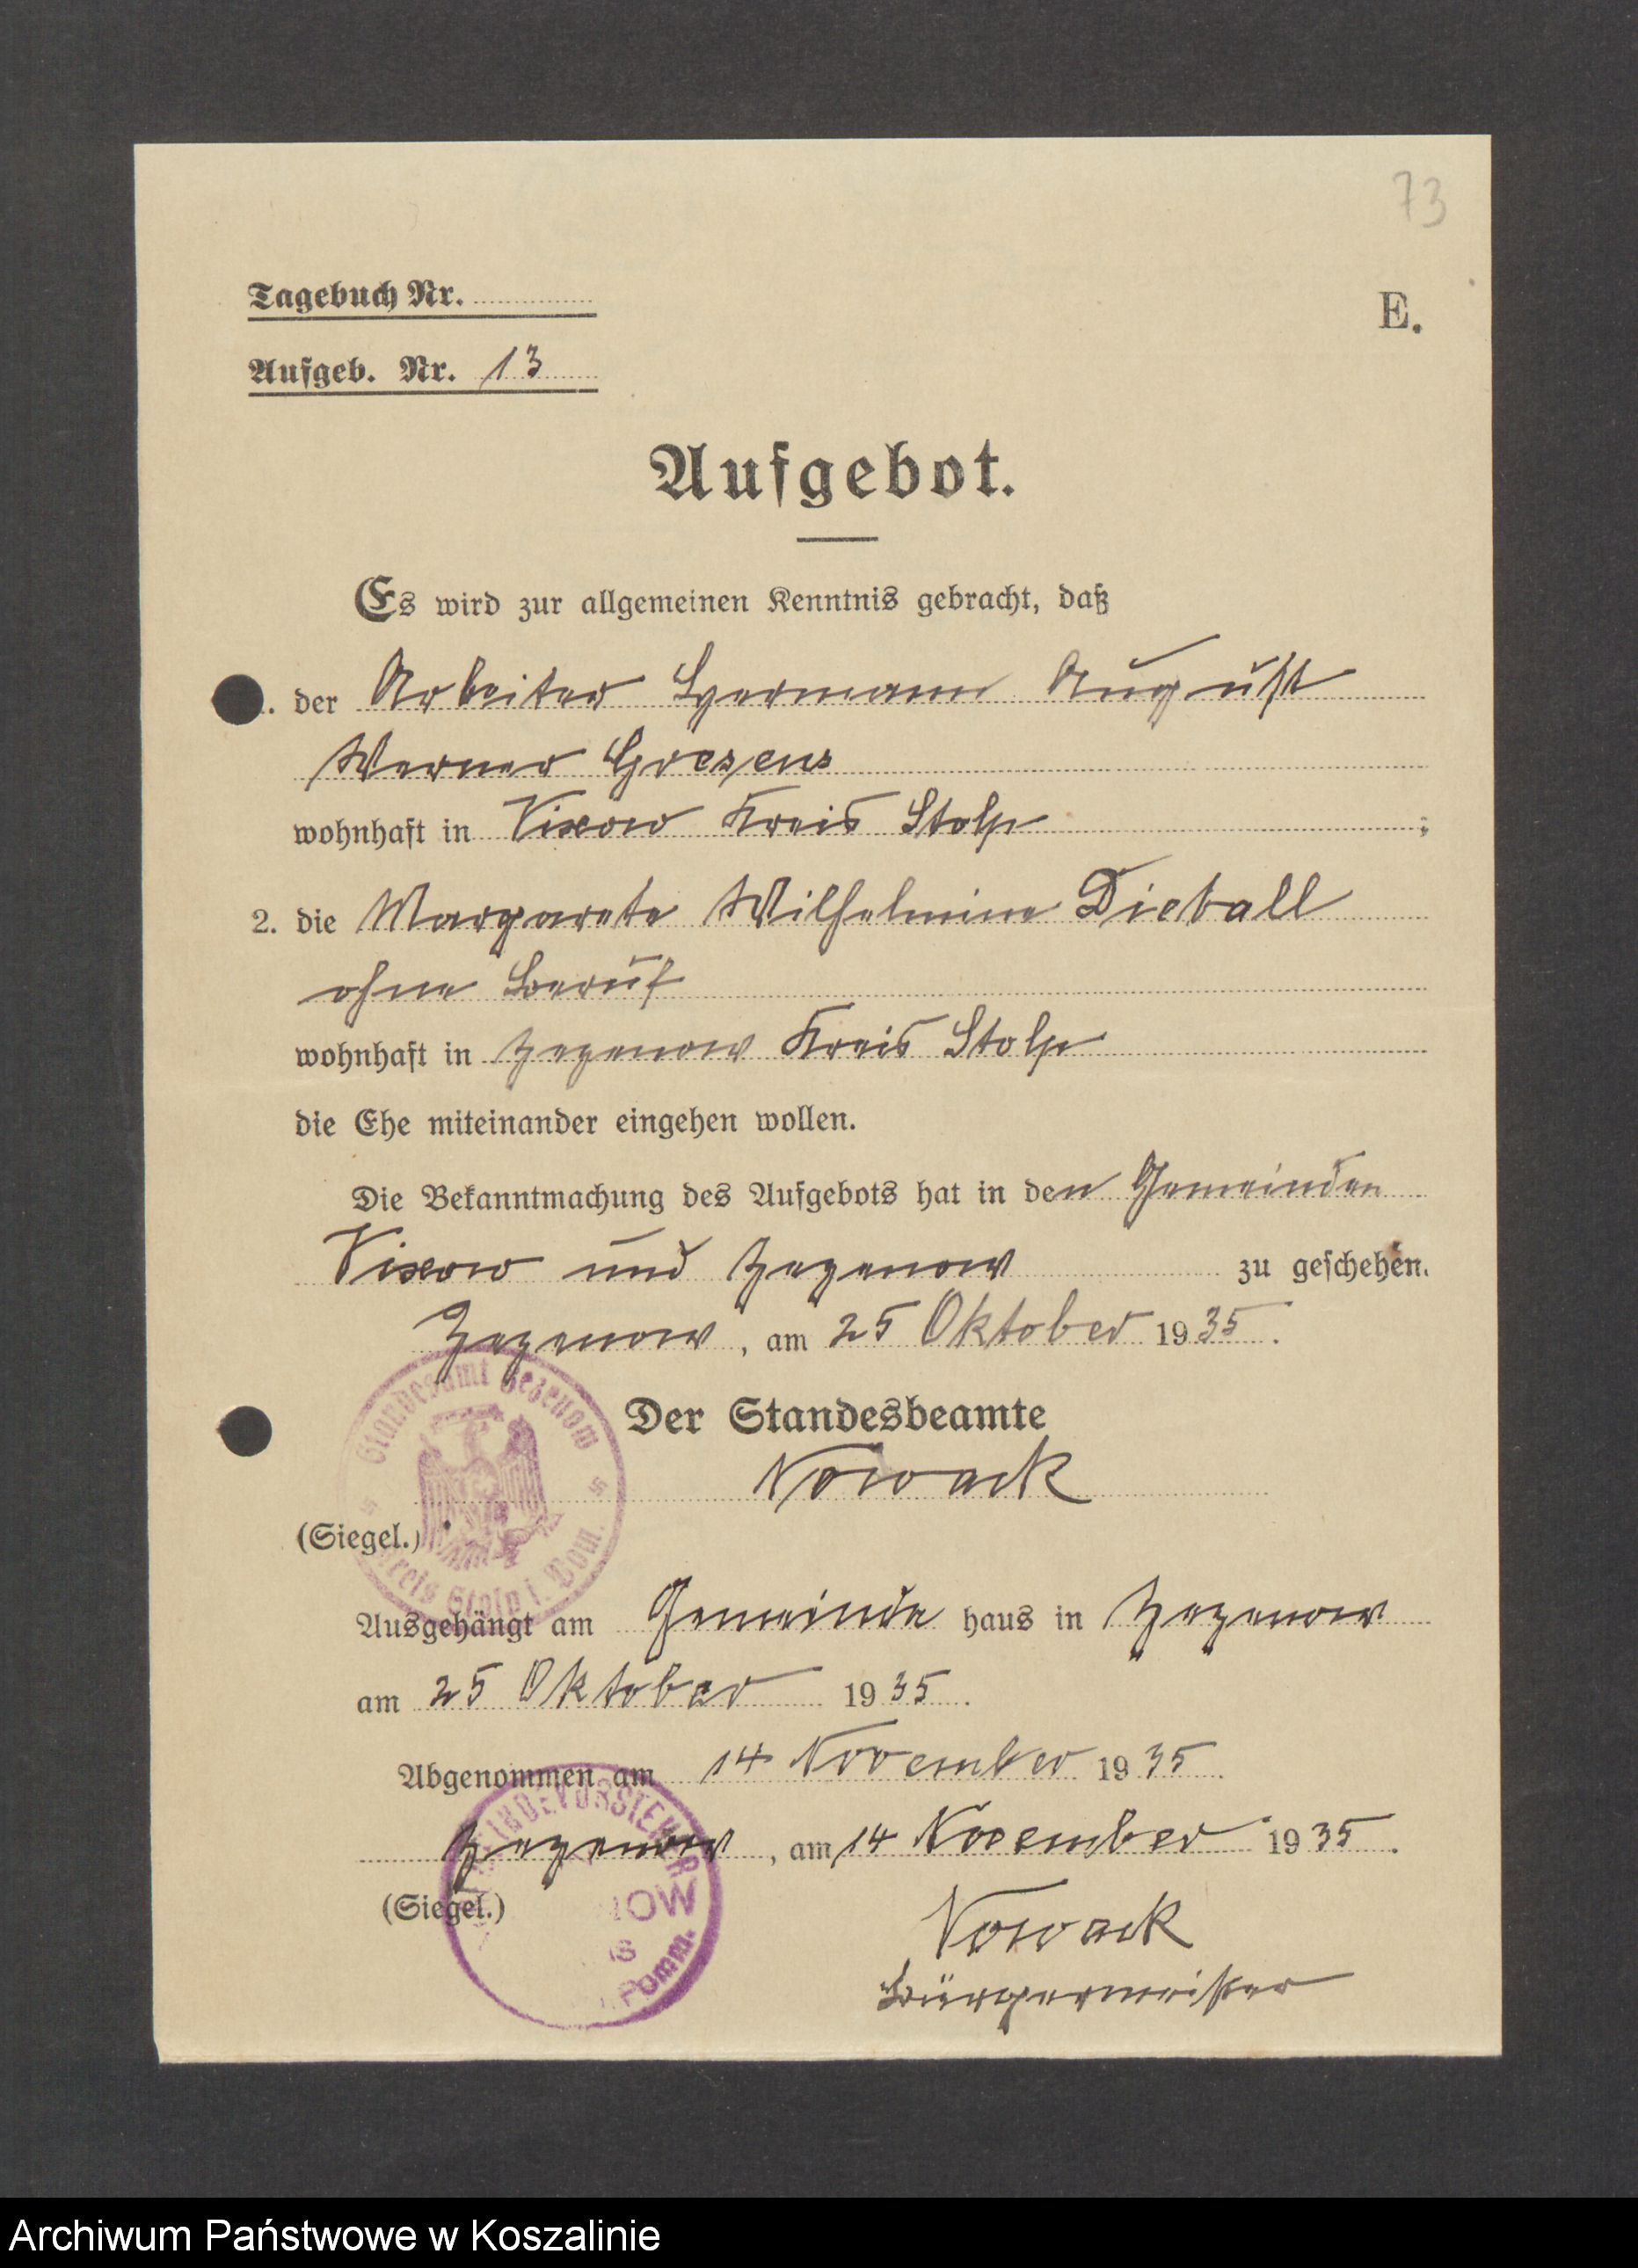 73
Tagebuch Nr.
E.
Aufgeb. Nr. 13
Aufgebot.
Es wird zur allgemeinen Kenntnis gebracht, daß
. der Arbeiter Hermann August
Werner
wohnhaft in Vixow Kreis Stolp ;
2. die Margarete Wilhelmine Dieball
ohne Beruf
wohnhaft in Zezenow Kreis Stolp
die Ehe miteinander eingehen wollen.
Die Bekanntmachung des Aufgebots hat in den Gemeinden
Vixow und Zezenow zu geschehen.
Zezenow, am 25 Oktober 1935.
Standesamt Zezenow
Kreis Stolp i. Pom.
Der Standesbeamte
Nowack
(Siegel.)
Ausgehängt am Gemeinde haus in Zezenow
am 25 Oktober 1935.
Abgenommen am 14 November 1935.
Zezenow, am 14 November 1935.
(Siegel.)
Pomm.
Nowack
Bürgermeister
Archiwum Państwowe w Koszalinie